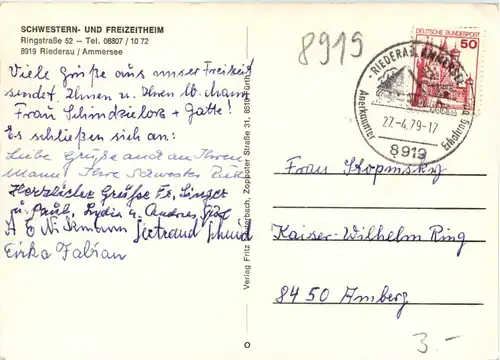 SCHWESTERN- UND FREIZEITHEIM
Ringstraße 52 — Tel. 08807 / 10 72
8919 Riederau / Ammersee
Viele Grüße aus unser Freizeit
sendet Ihnen u. Ihren lb. Mann
Frau Schindzielorz + Gatte!
Es schließen sich an:
Liebe Grüße auch an Ihren
Mann Ihre Schwester
Herzlicher Grüße Fr. Singer
u. Paul, Lydia u. Andreas
Gertraud Schmid
Erika Fabian
Verlag Fritz Lauterbach, Zoppoter Straße 31, 8510 Fürth
8919
DEUTSCHE BUNDESPOST
50
RIEDERAU, AMMERSEE
Anerkannter
Erholungsort
27.-4.79-17
8919
Frau Kopmsky
Kaiser-Wilhelm Ring
8450 Amberg
3.-